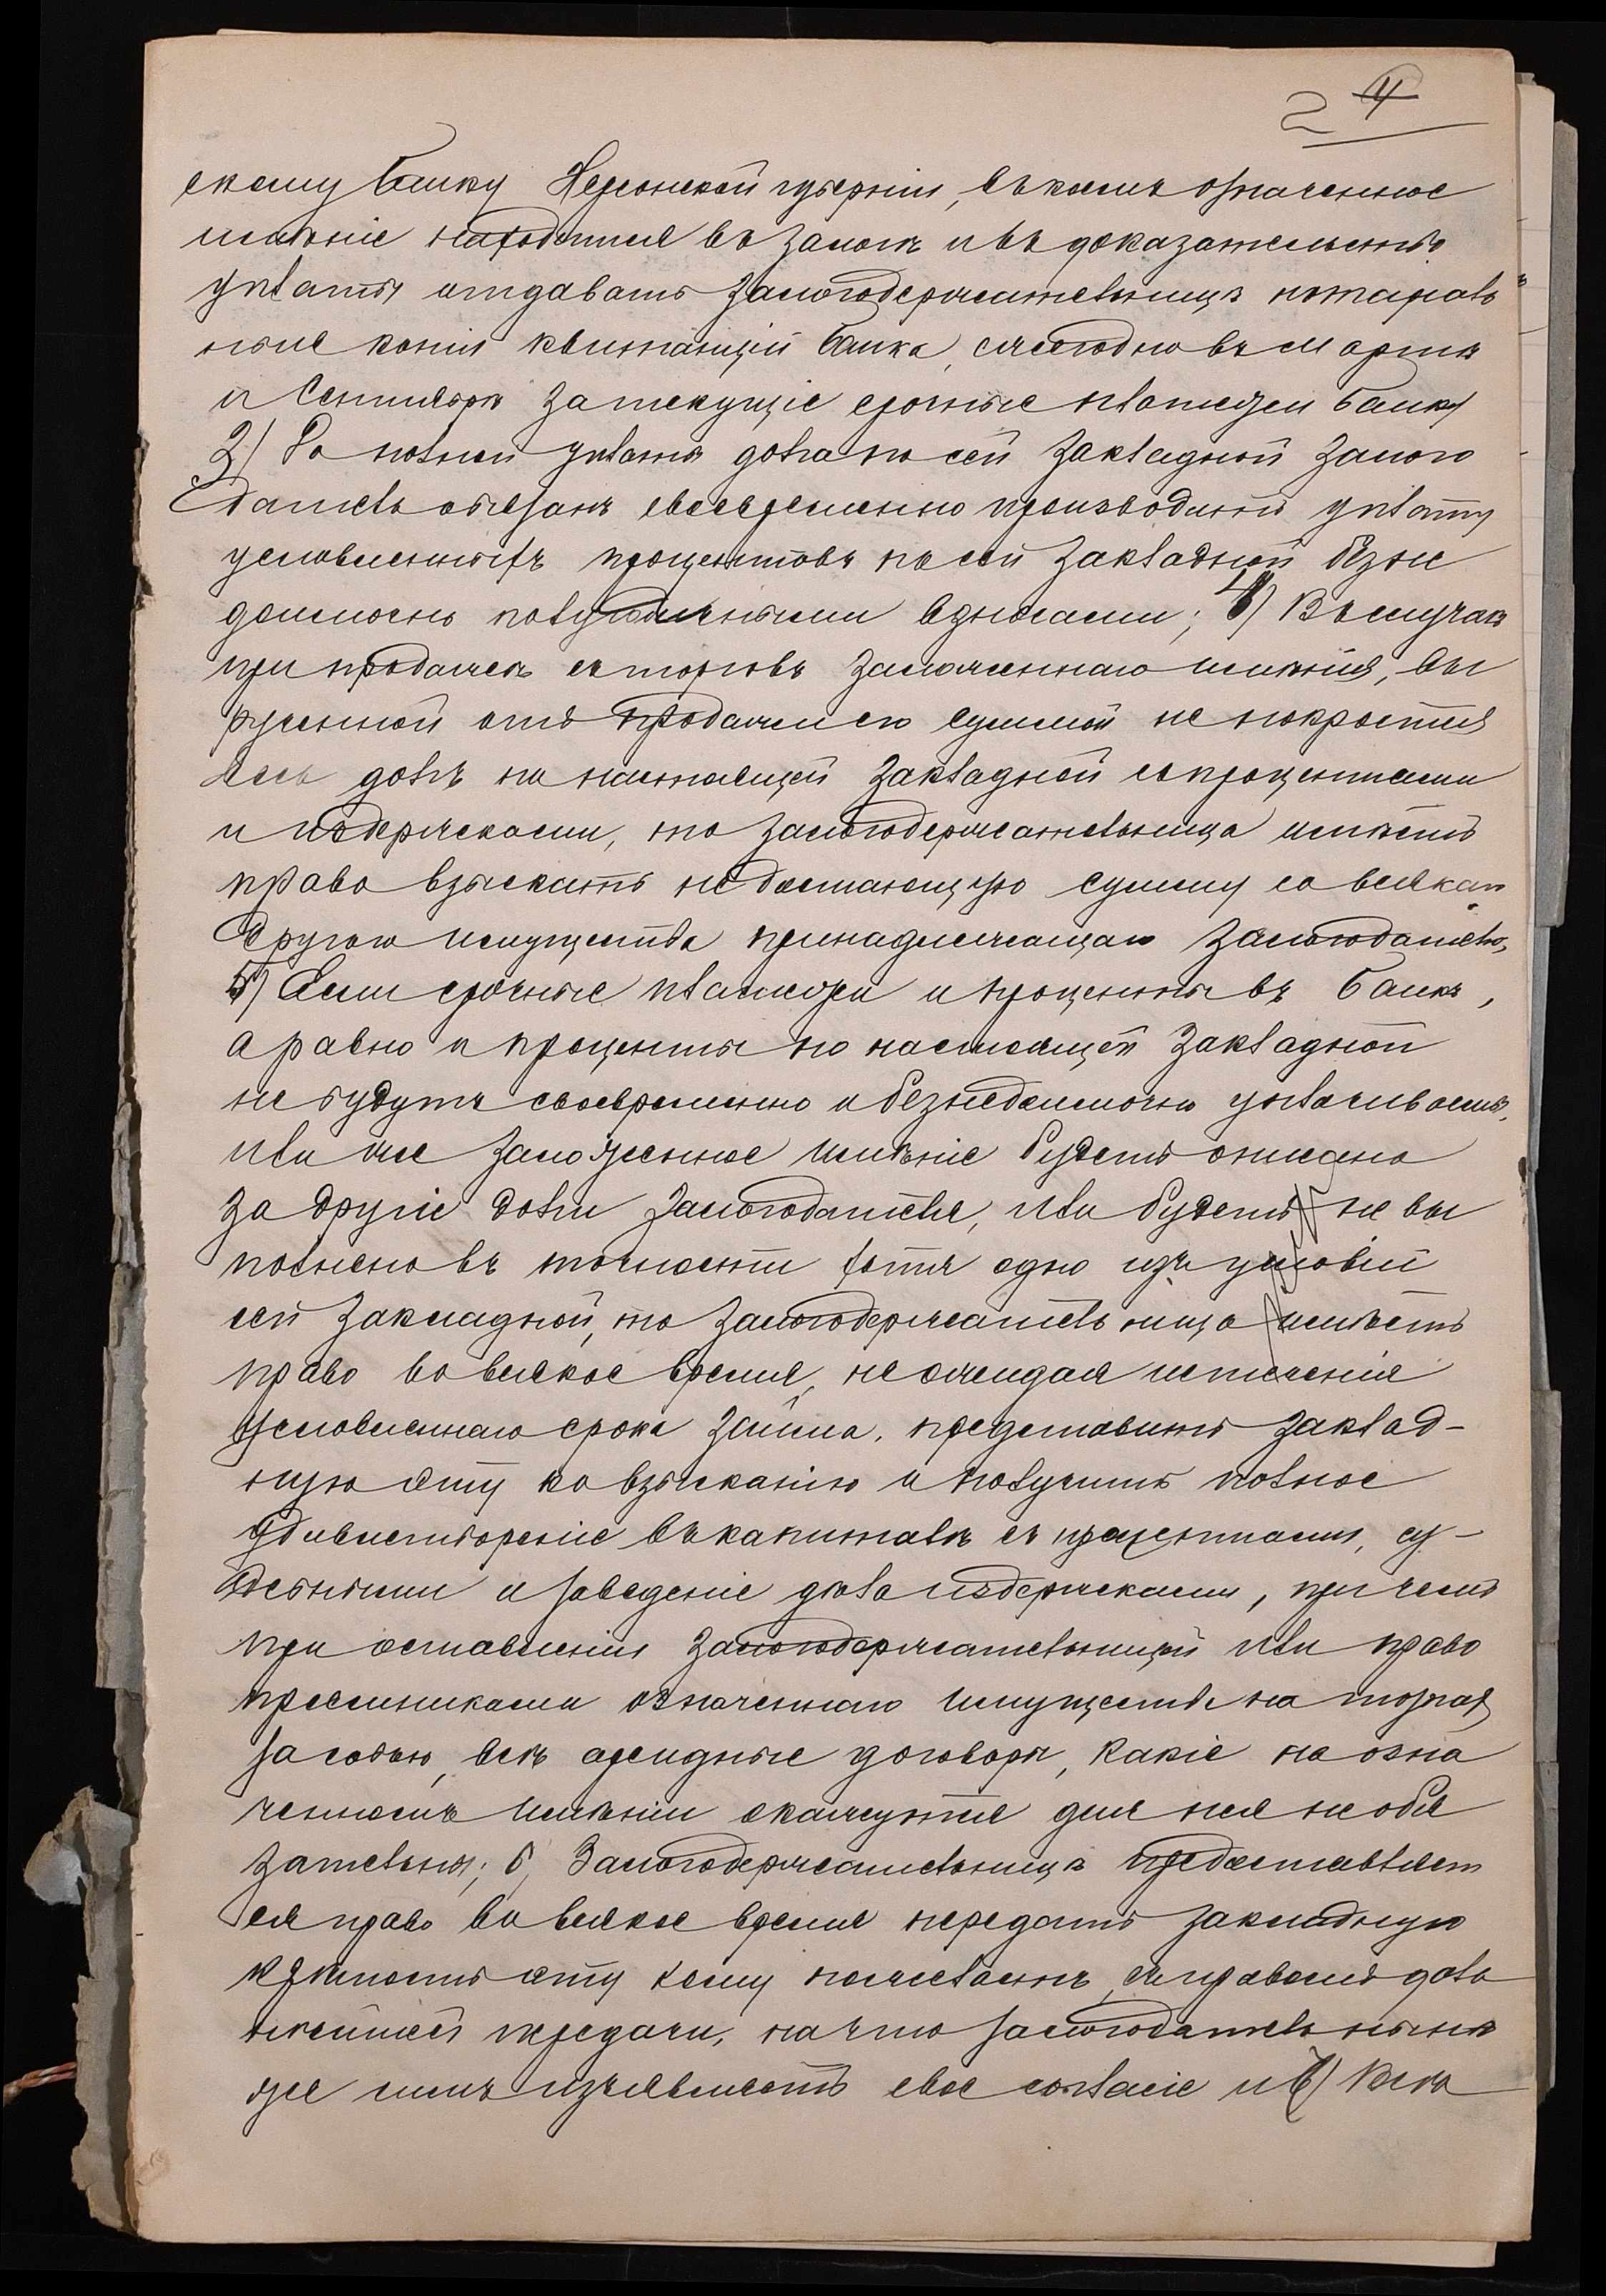 2 4
скому банку Херсонской губерніи, въ коемъ означенное
имѣніе находится въ залогѣ и въ доказательство
уплаты отдавать залогодержательницѣ нотарiаль
ныя копіи квитанцій банка, ежегодно въ мартѣ
и Сентябрѣ за текущіе срочные платежи банку
3) До полной уплаты долга по сей закладной залого
датель обязанъ своевременно производить уплату
условленныхъ процентовъ по сей закладной безне
доимочно полугодичными взносами; 4) Въ случаѣ
при продажѣ съ торговъ заложеннаго имѣнія, вы
рученной отъ продажи его суммой не покроется
весь долгъ по настоящей закладной съ процентами
и издержками, то залогодержательница имѣетъ
право взыскать недостающую сумму со всякаго
другого имущества принадлежащаго залогодателю,
5) Если срочные платежи и проценты въ банкъ,
а равно и проценты по настоящей закладной
не будутъ своевременно и безнедоимочно уплачиваемы,
или же заложенное имѣніе будетъ описано
за другіе долги залогодателя, или будетъ не вы
полнено въ точности хотя одно изъ условій
сей закладной, то залогодержательница имѣетъ
право во всякое время, не ожидая истеченія
условленнаго срока займа, представить заклад-
ную эту ко взысканію и получить полное
удовлетвореніе въ капиталѣ съ процентами, су-
дебными и за веденіе дѣла издержками, при чемъ
при оставленіи залогодержательницей или право
преемниками означеннаго имущества на торгахъ
за собою, всѣ арендные договоры, какіе на озна
ченномъ имѣніи окажутся для нея не обя
зательны; 6) Залогодержательницѣ предоставляет
ся право во всякое время передать закладную
крѣпость эту кому пожелаетъ, съ правомъ даль
нѣйшей передачи, на что залогодатель нынѣ
же симъ изъявляетъ свое согласіе и 7) Всѣ